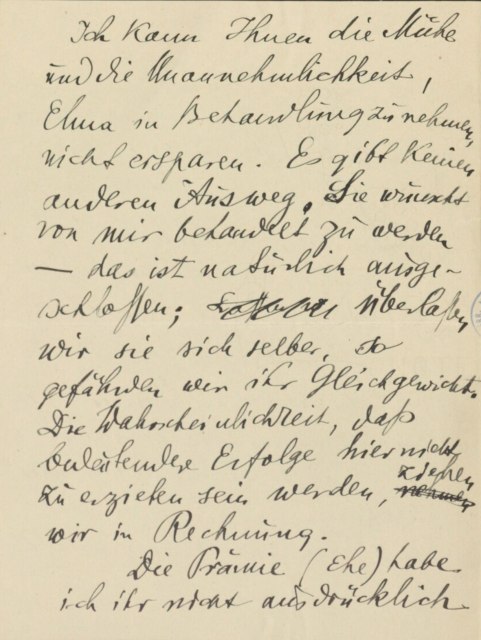 Ich kann Ihnen die Mühe
und die Unannehmlichkeit,
Elma in Behandlung zu nehmen,
nicht ersparen. Es gibt keinen
anderen Ausweg. Sie wünscht
von mir behandelt zu werden
— das ist natürlich ausge-
schlossen; überlassen
wir sie sich selber, so
gefährden wir ihr Gleichgewicht.
Die Wahrscheinlichkeit, daß
bedeutendere Erfolge hier nicht
zu erzielen sein werden, nehmen ziehen
wir in Rechnung.
Die Prämie (Ehe) habe
ich ihr nicht ausdrücklich